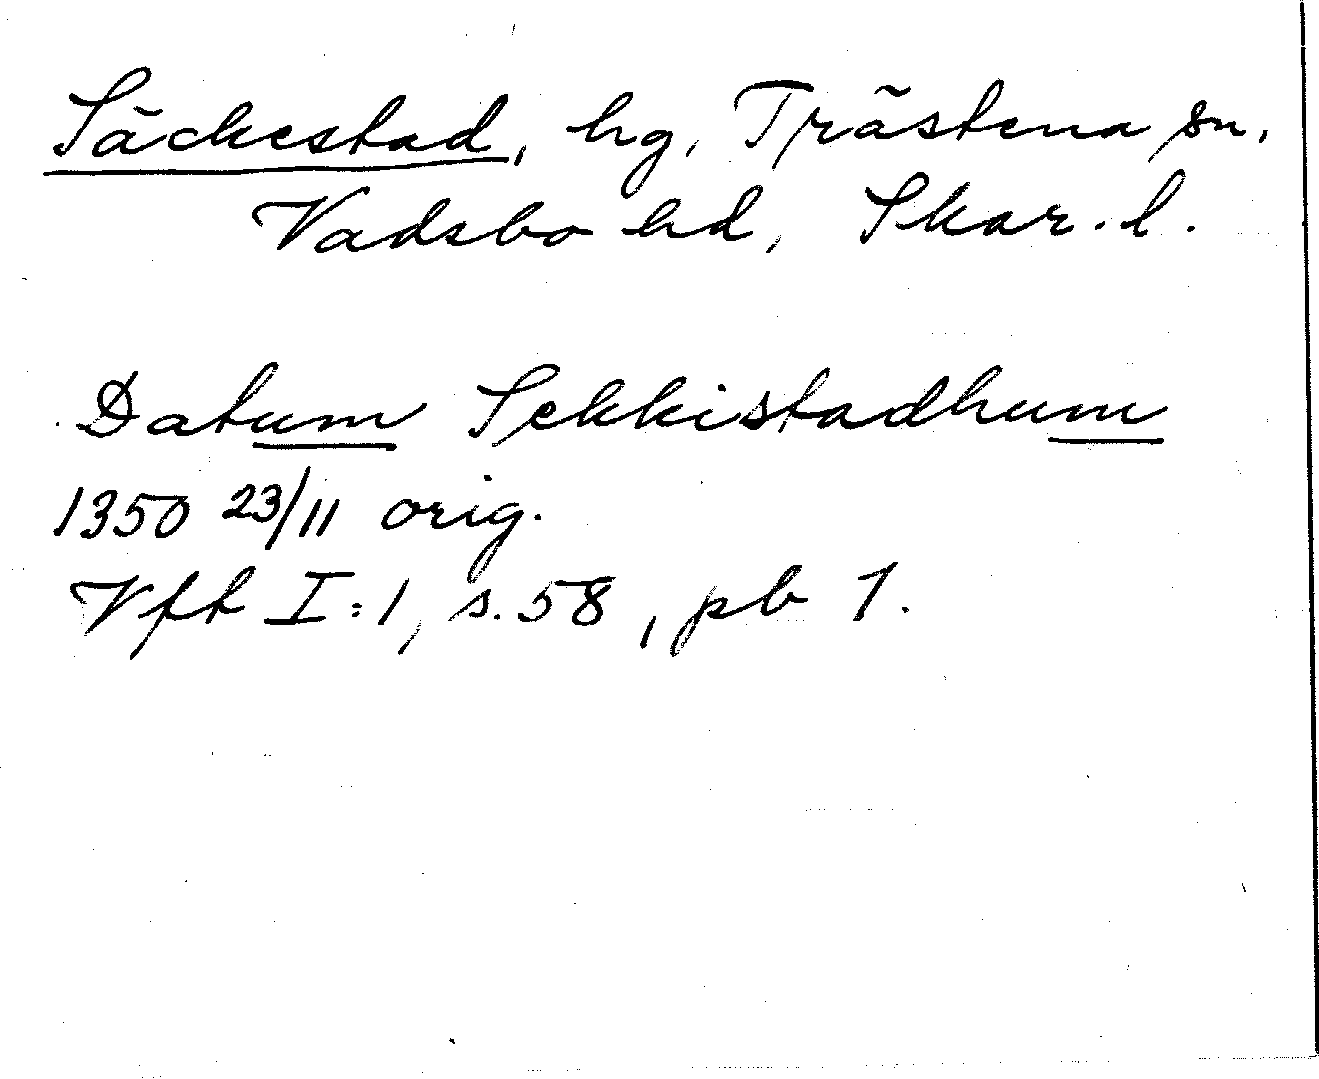 Säckestad, hg, Trästena sn,
Vadsbo hd, Skar. l.
Datum Sekkistadhum
1350 23/11 orig.
Vft I:1, s. 58, pb 1.